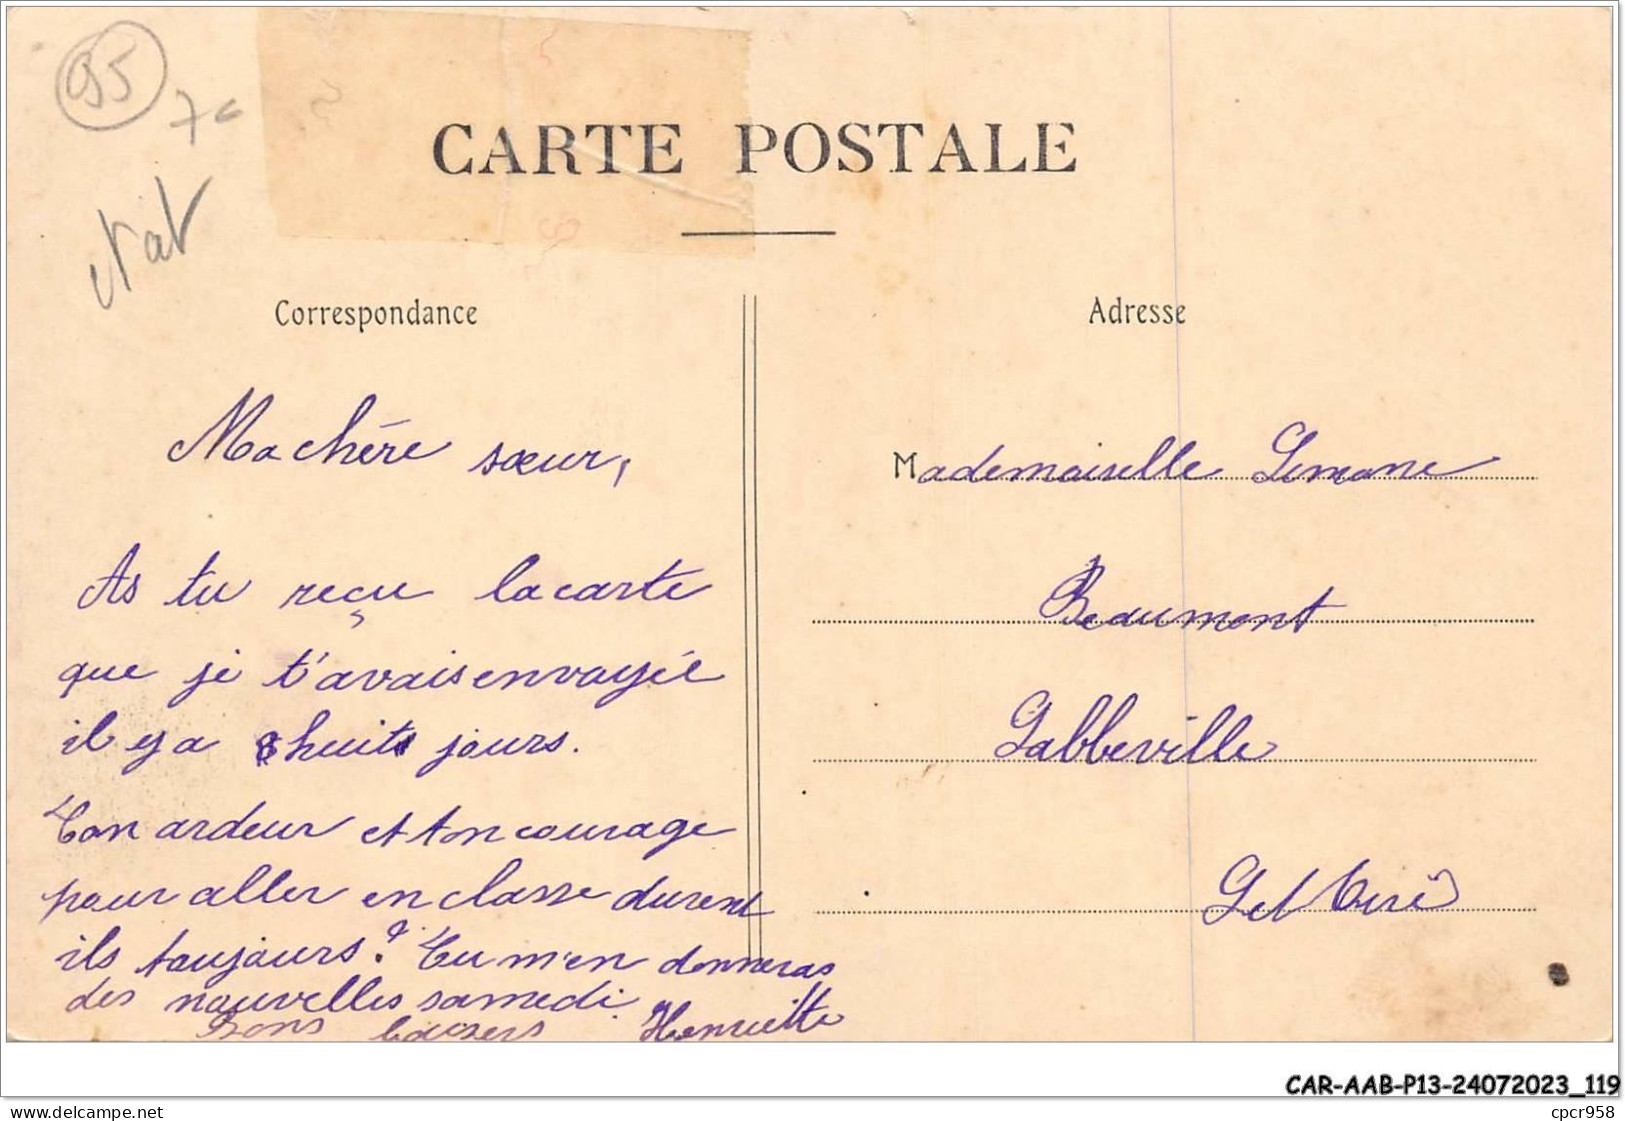 95
CARTE POSTALE
Correspondance
Ma chère sœur,
As tu reçu la carte
que je t'avais envoyée
il y a huit jours.
Ton ardeur et ton courage
pour aller en classe durent
ils toujours? Tu m'en donneras
des nouvelles samedi
Bons baisers Henriette
Adresse
Mademoiselle Simone
Beaumont
Labbeville
CAR-AAB-P13-24072023_119
cpcr958
https://www.delcampe.net